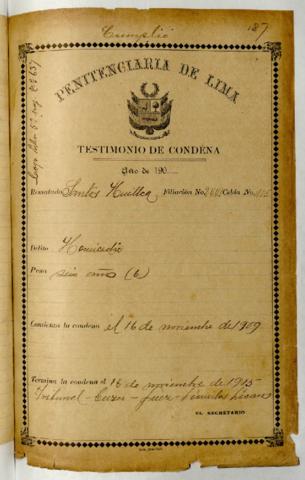 Cumplió
187
PENITENCIARIA DE LIMA
TESTIMONIO DE CONDENA
Año de 190
Rematado Santos Huillca Filiación No. Celda No.
Delito Homicidio
Pena seis años (6)
Comienza la condena el 16 de noviembre de 1909
Termina la condena el 16 de noviembre de 1915
Tribunal - Cuzco - Juez -
EL SECRETARIO